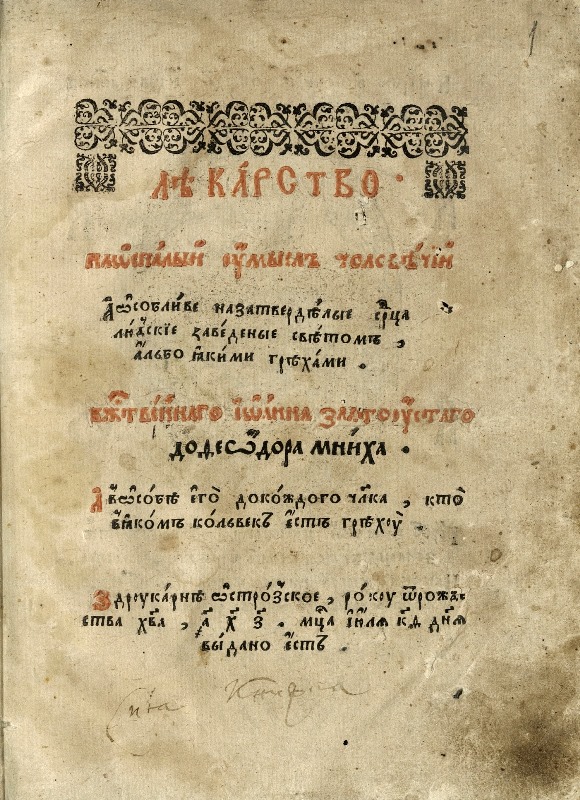 1
лѣка́рство ·
наѡспа́лый оу҆мы́слъ чолове́чїй
А҆ѡсобли́ве назатвердѣ́лые срⷣца
лю́дскїе заведе́ные свѣ́томъ ,
а҆льбо ꙗ҆ки́ми грѣха́ми .
бжⷭ҇тве́ннаго їѡа́нна златоу́стаго
доѳеѡ́дора мни́ха .
А҆ вѡсо́бѣ є҆го̀ доко́ждого чл҃ка , кто̀
въꙗ҆ко́мъ ко́львекъ є҆́стъ грѣхоу̀
З друка́рнѣ ѡ҆стро́зское , ро́коу ѿ рожъ-
ства хв҃а , ҂а҃ х҃ з҃ . мцⷭ҇а і҆ю́лѧ к҃д днѧ̀
вы́дано є҆́стъ .
сиѧ Книга